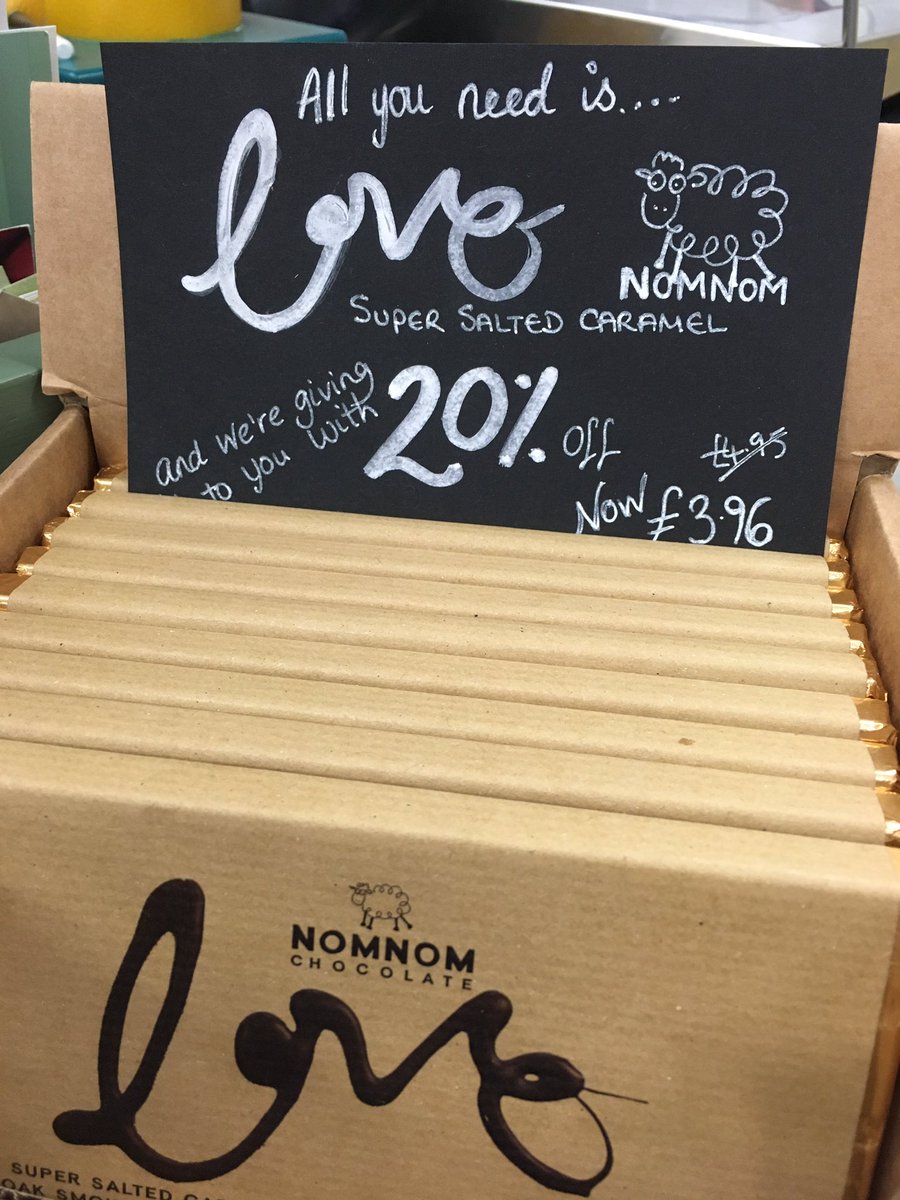 All you need is....
love
NOMNOM
SUPER SALTED CARAMEL
and we're giving
to you with
20% off
£4.95
Now £3.96
NOMNOM
CHOCOLATE
love
SUPER SALTED
OAK